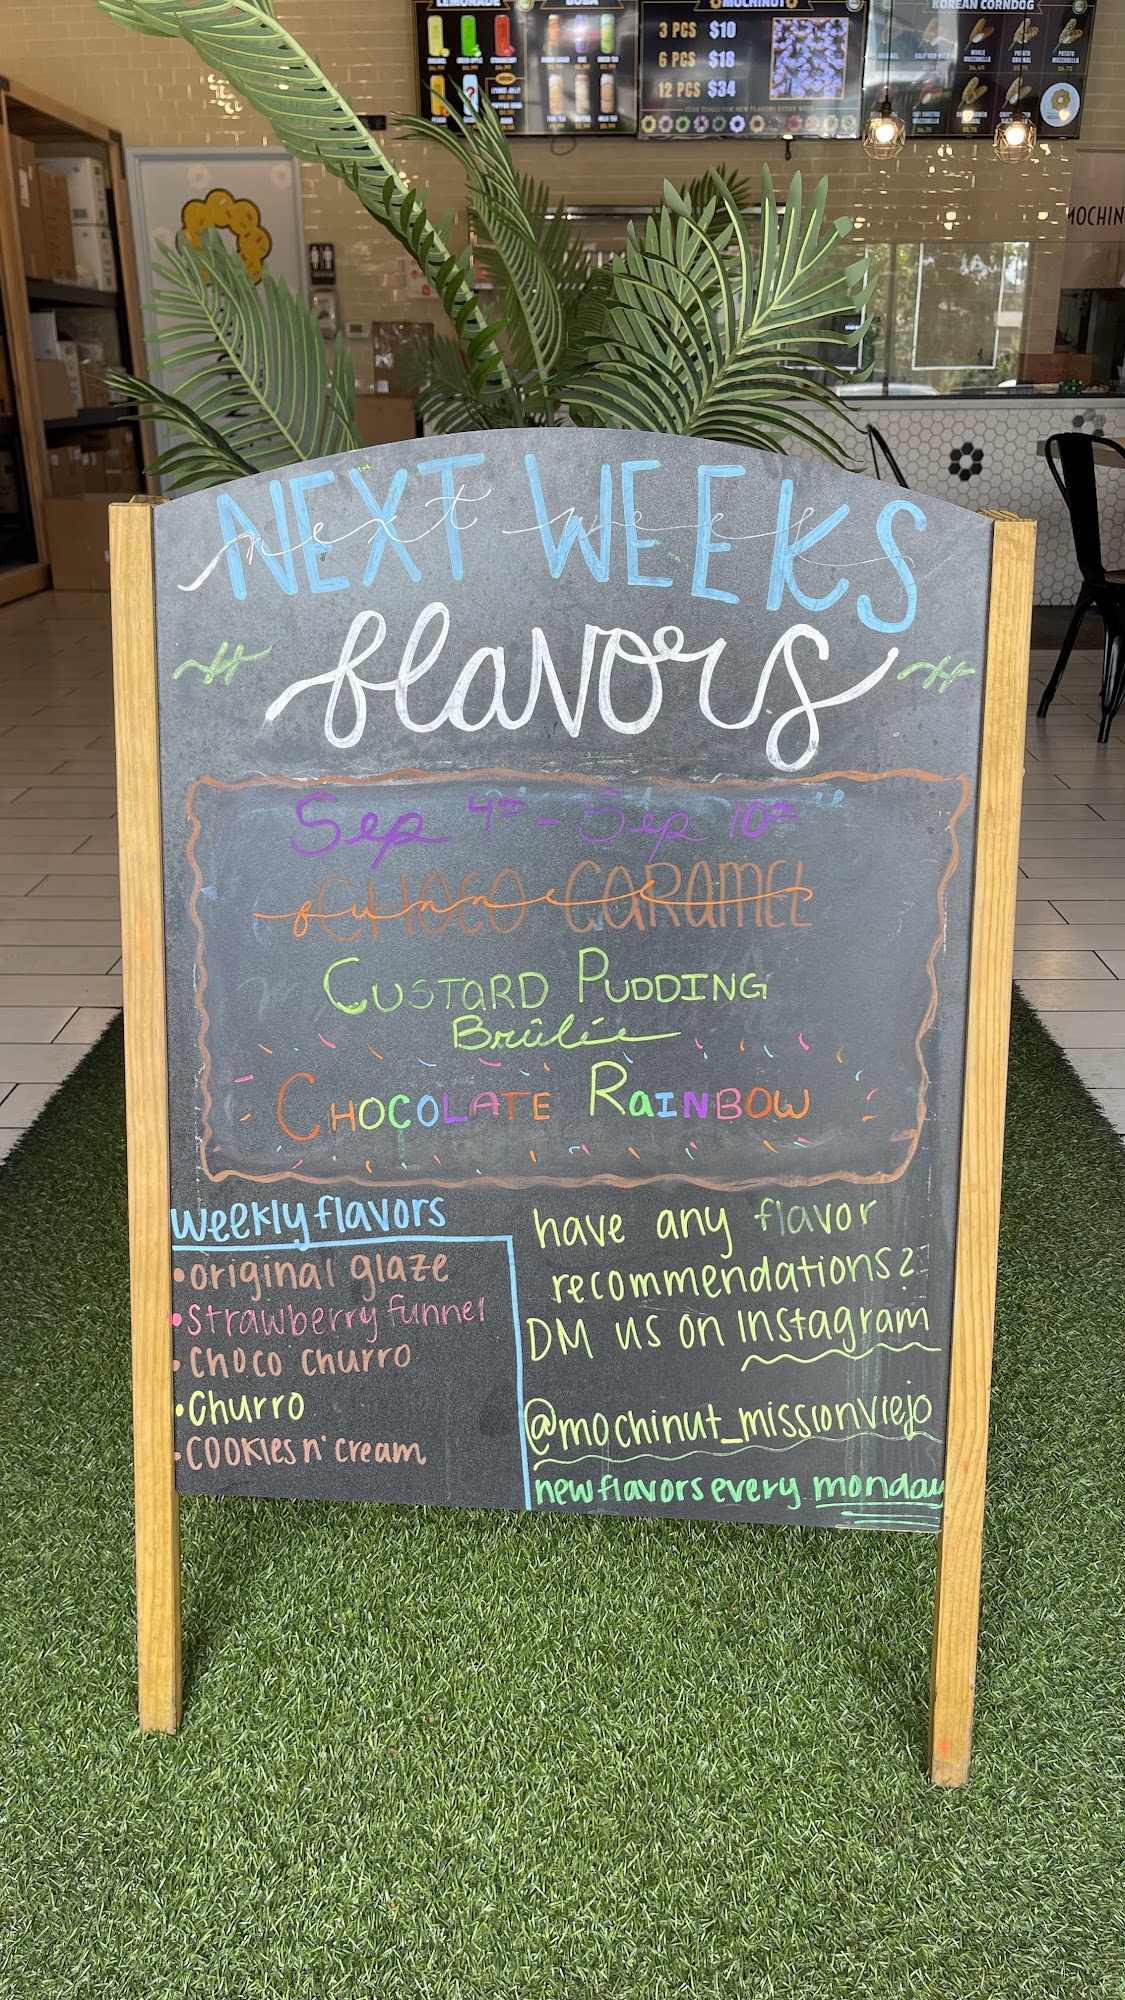 LEMONADE
BOBA
MOCHINUT
3 PCS $10
6 PCS $18
12 PCS $34
KOREAN CORNDOG
MOCHIN
NEXT WEEKS
next weeks
flavors
Sep 4th - Sep 10th
CHOCO CARAMEL
funnel
CUSTARD PUDDING
Brûlée
CHOCOLATE RAINBOW
weekly flavors
• original glaze
• Strawberry funnel
• Choco churro
• Churro
• COOKIES n' cream
have any flavor
recommendations?
DM us on Instagram
@mochinut_missionviejo
new flavors every monday